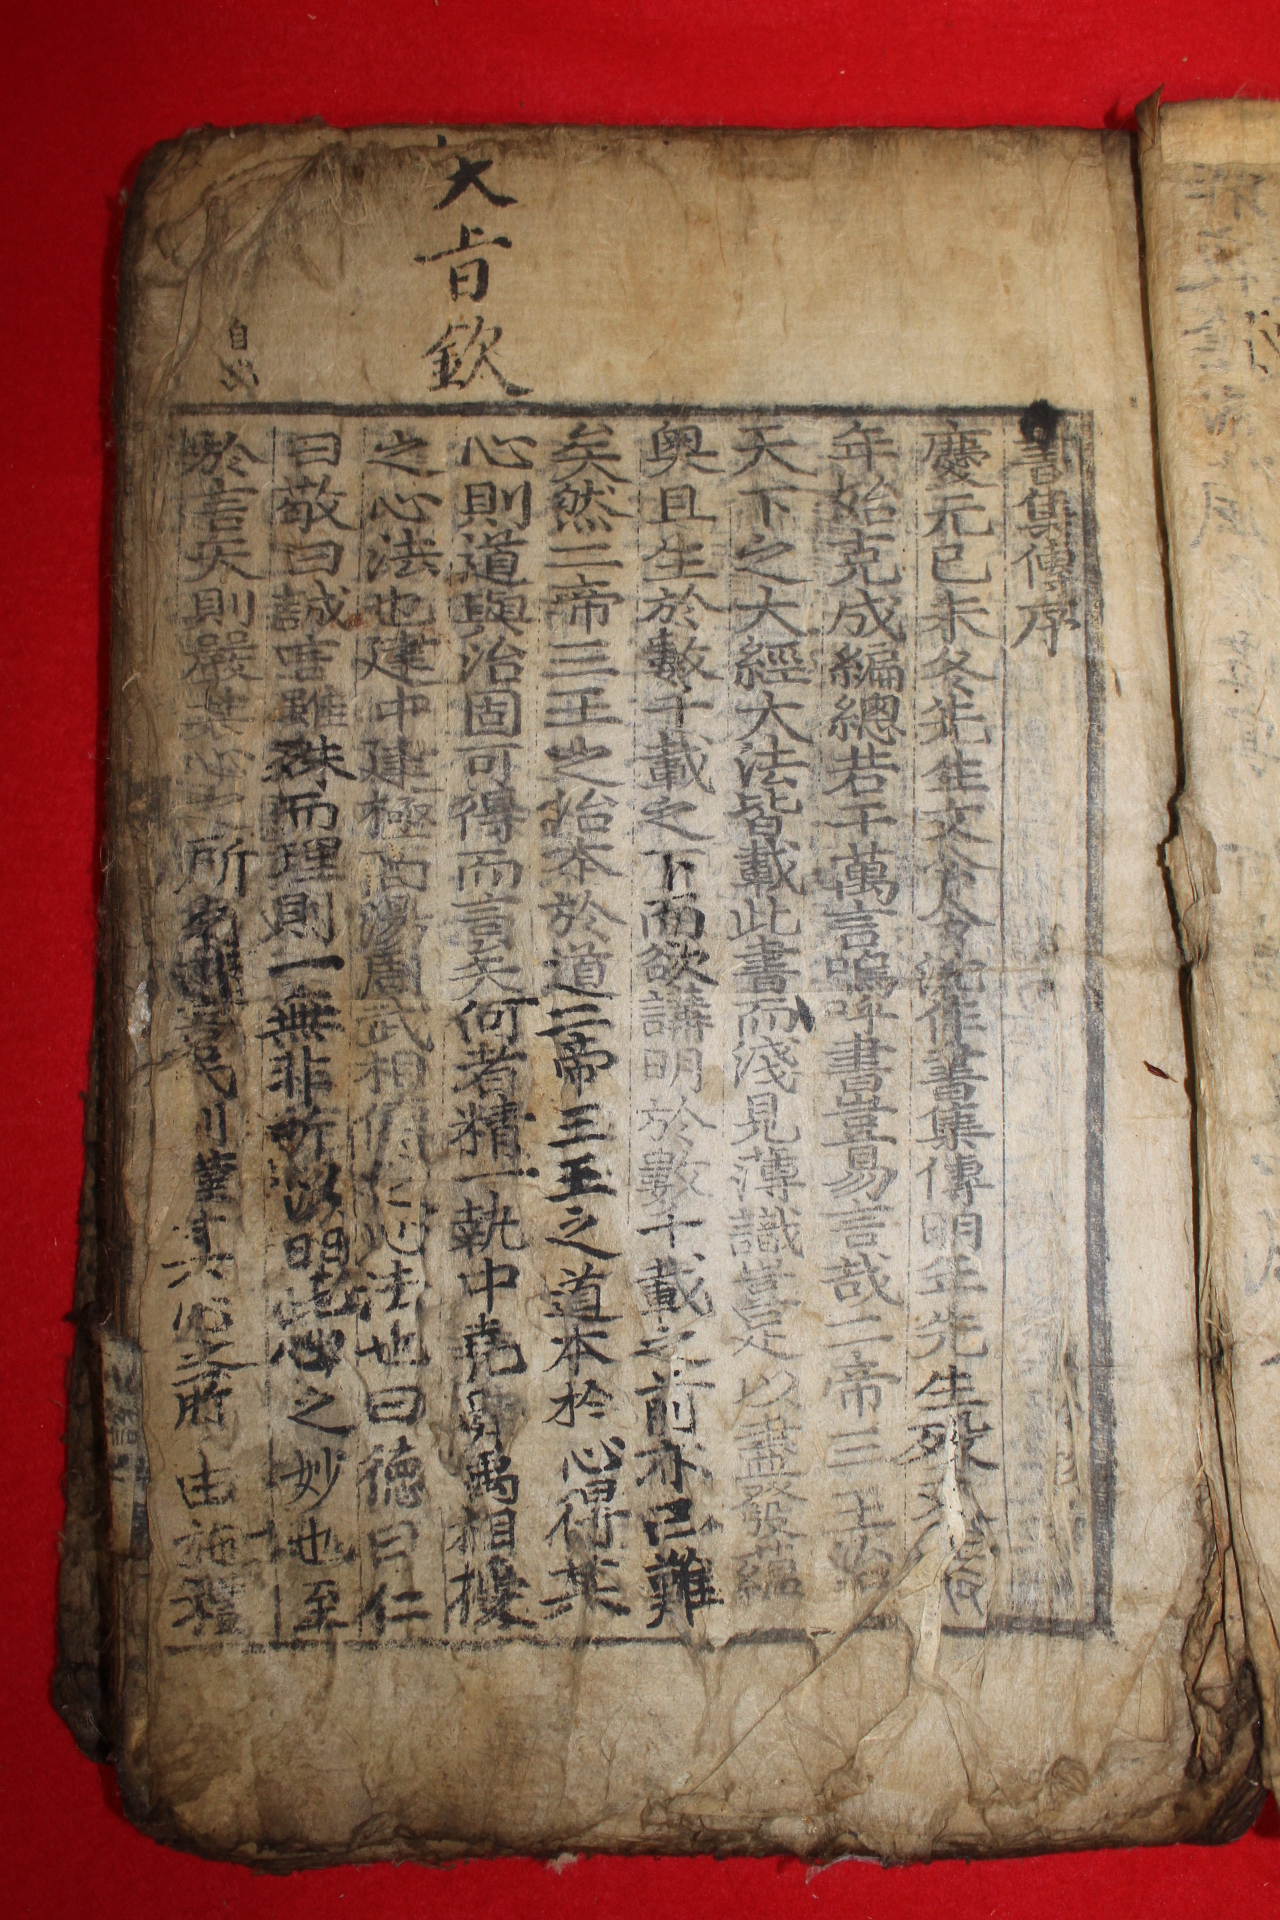 大旨欽
書集傳序
慶元己未冬先生文公令沈作書集傳明年先生歿又
年始克成編總若干萬言嗚呼書豈易言哉二帝三王治
天下之大經大法皆載此書而淺見薄識豈足以盡發蘊
奧且生於數千載之下而欲講明於數千載之前亦已難
矣然二帝三王之治本於道二帝三王之道本於心得其
心則道與治固可得而言矣何者精一執中堯舜禹相授
之心法也建中建極商湯周武相傳之心法也曰德曰仁
曰敬曰誠言雖殊而理則一無非所以明此心之妙也至
於言天則嚴其心之所自出言民則謹其心之所由施禮